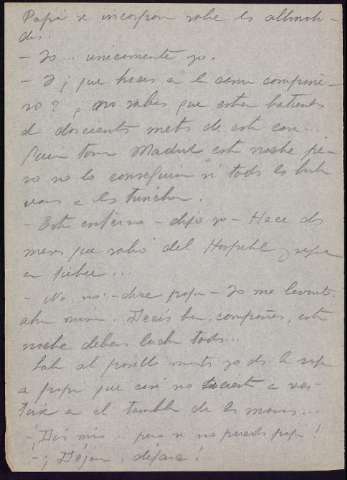 Papá se incorpora sobre las almoha-
das...
— Yo... únicamente yo.
— Y ¿que haces en la cama compañe-
ro? ¿no sabes que estan batiendose
a doscientos metros de esta casa...
Quieren tomar Madrid esta noche pe-
ro no lo conseguiran si todos les lucha
mos a las trincheras.
— Está enfermo — dijo yo — Hace dos
meses que salio del Hospital y sigue
con fiebre...
— No, no — dice papa — Yo me levanto
ahora mismo. Decis bien, compañeros, esta
noche deben luchar todos...
Salen al pasillo mientras yo doy la ropa
a papa que casi no acierta a ves-
tirse con el temblor de las manos...
— ¡Dios mio... pero si no puedes papa!
— ¡Déjame, déjame!